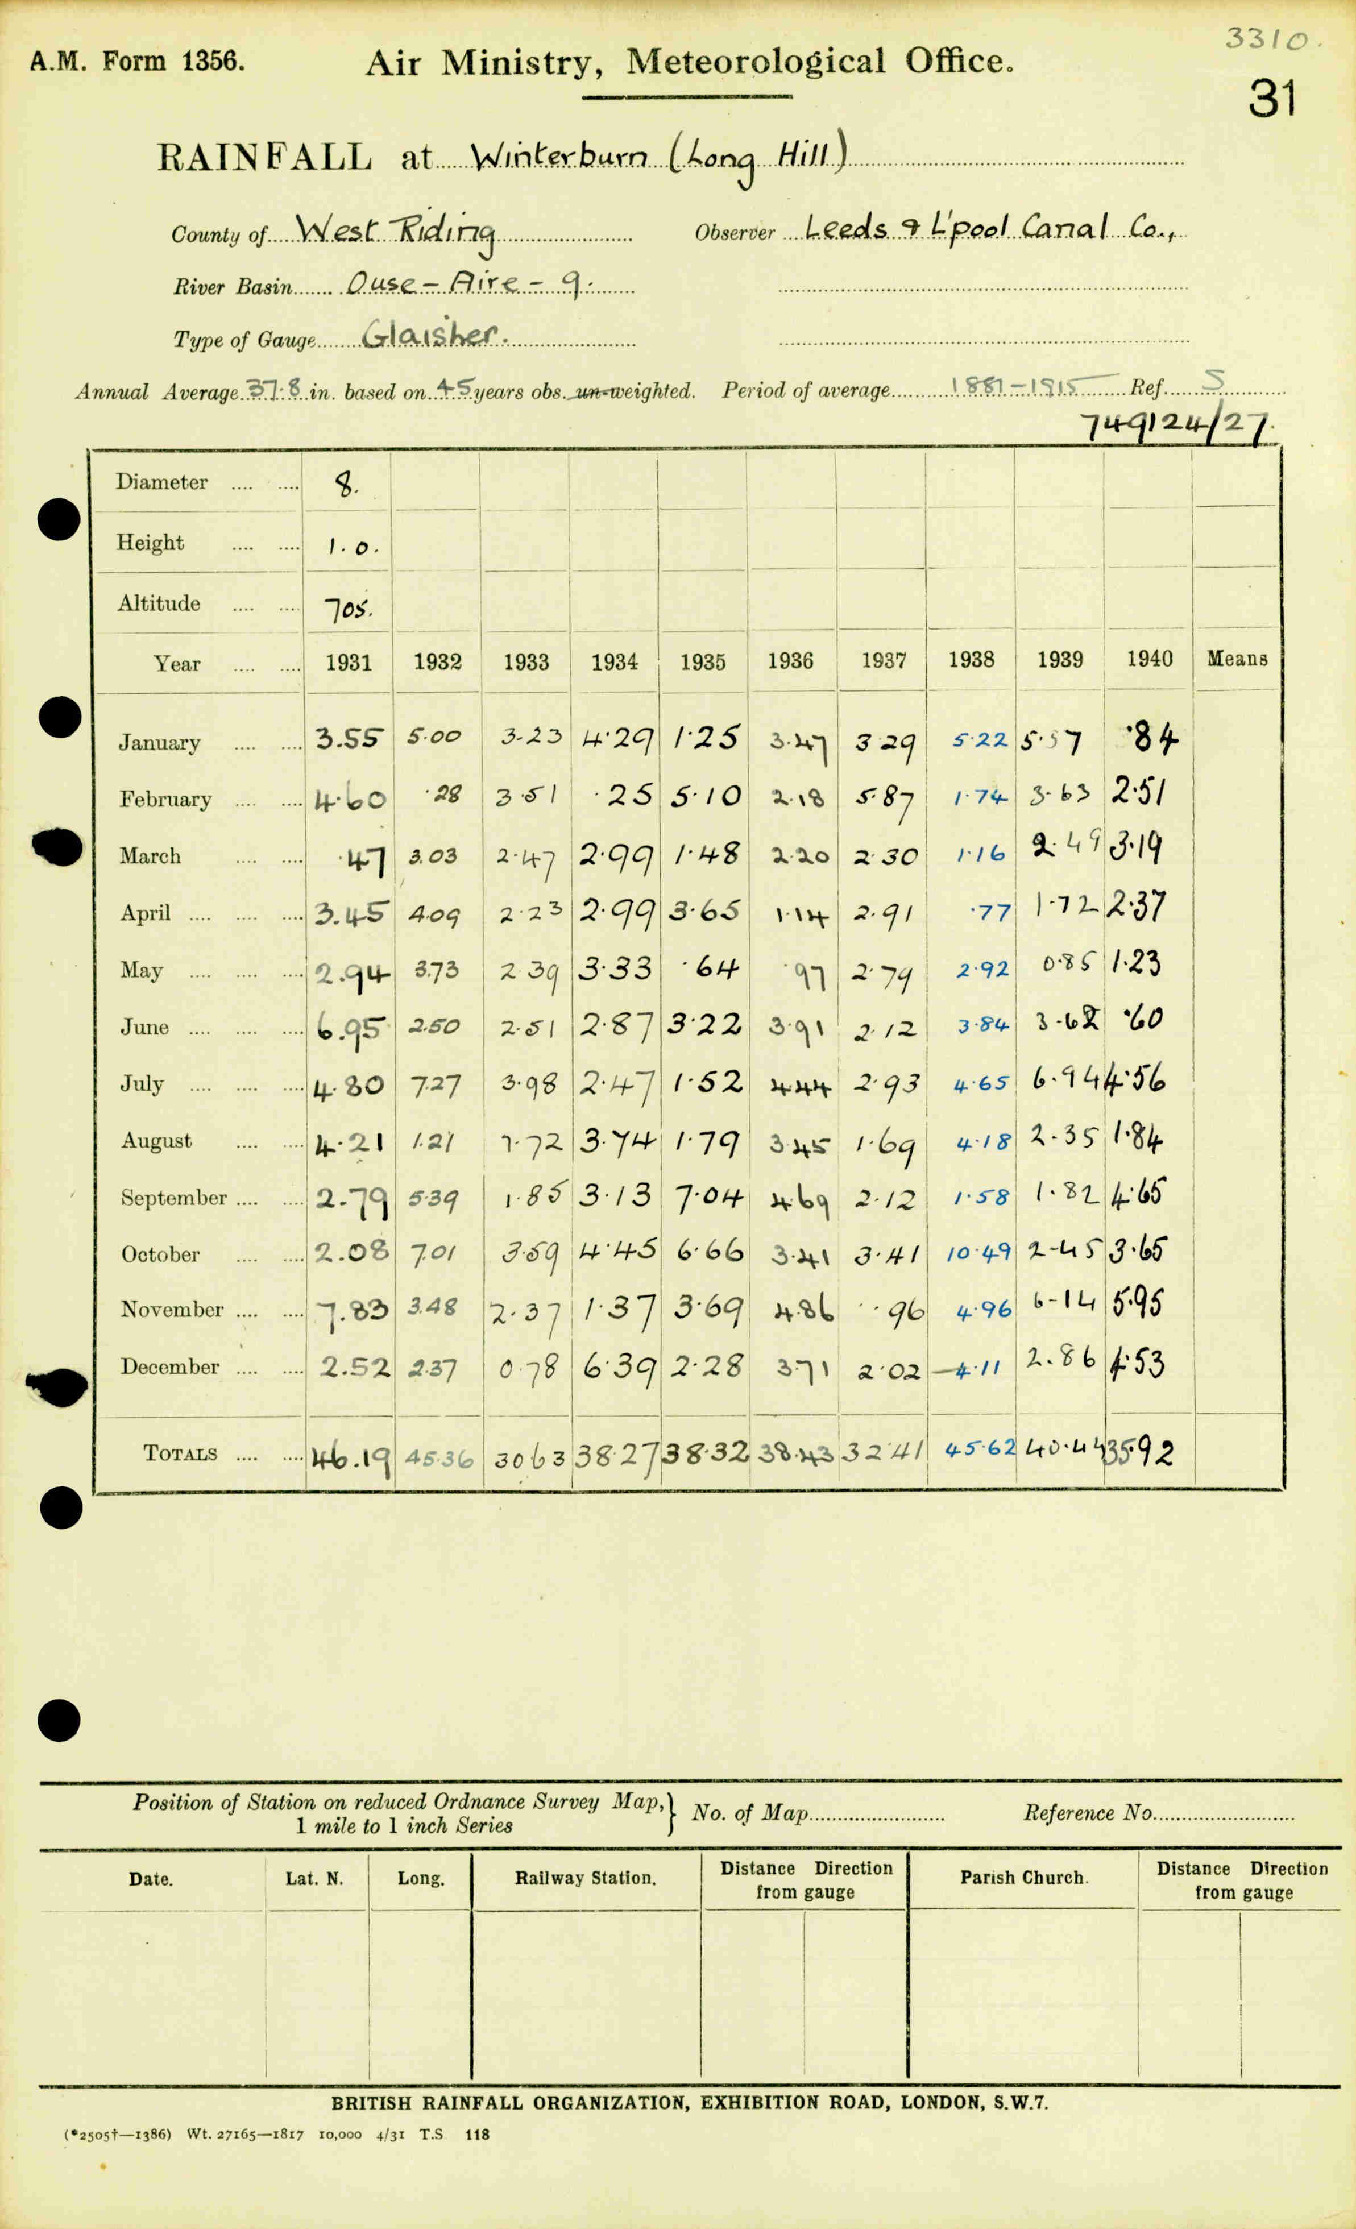 3310.
A.M. Form 1356. Air Ministry, Meteorological Office.
31
RAINFALL at Winterburn (Long Hill)
County of West Riding Observer Leeds & L'pool Canal Co.,
River Basin Ouse – Aire – 9.
Type of Gauge Glaisher.
Annual Average 37.8 in. based on 45 years obs. un-weighted. Period of average 1881–1915 Ref. S
749124/27.
Diameter 8.
Height 1.0.
Altitude 705.
Year 1931 1932 1933 1934 1935 1936 1937 1938 1939 1940 Means
January 3.55 5.00 3.23 4.29 1.25 3.47 3.29 5.22 5.57 .84
February 4.60 .28 3.51 .25 5.10 2.18 5.87 1.74 3.63 2.51
March .47 3.03 2.47 2.99 1.48 2.20 2.30 1.16 2.49 3.19
April 3.45 4.09 2.23 2.99 3.65 1.14 2.91 .77 1.72 2.37
May 2.94 3.73 2.39 3.33 .64 .97 2.79 2.92 0.85 1.23
June 6.95 2.50 2.51 2.87 3.22 3.91 2.12 3.84 3.62 .60
July 4.80 7.27 3.98 2.47 1.52 4.44 2.93 4.65 6.94 4.56
August 4.21 1.21 1.72 3.74 1.79 3.45 1.69 4.18 2.35 1.84
September 2.79 5.39 1.85 3.13 7.04 4.69 2.12 1.58 1.82 4.65
October 2.08 7.01 3.59 4.45 6.66 3.41 3.41 10.49 2.45 3.65
November 7.83 3.48 2.37 1.37 3.69 4.86 .96 4.96 6.14 5.95
December 2.52 2.37 0.78 6.39 2.28 3.71 2.02 4.11 2.86 4.53
TOTALS 46.19 45.36 30.63 38.27 38.32 38.43 32.41 45.62 40.44 35.92
Position of Station on reduced Ordnance Survey Map, } No. of Map Reference No.
1 mile to 1 inch Series
Date. Lat. N. Long. Railway Station. Distance Direction from gauge Parish Church. Distance Direction from gauge
BRITISH RAINFALL ORGANIZATION, EXHIBITION ROAD, LONDON, S.W.7.
(*2505†—1386) Wt. 27165—1817 10,000 4/31 T.S. 118